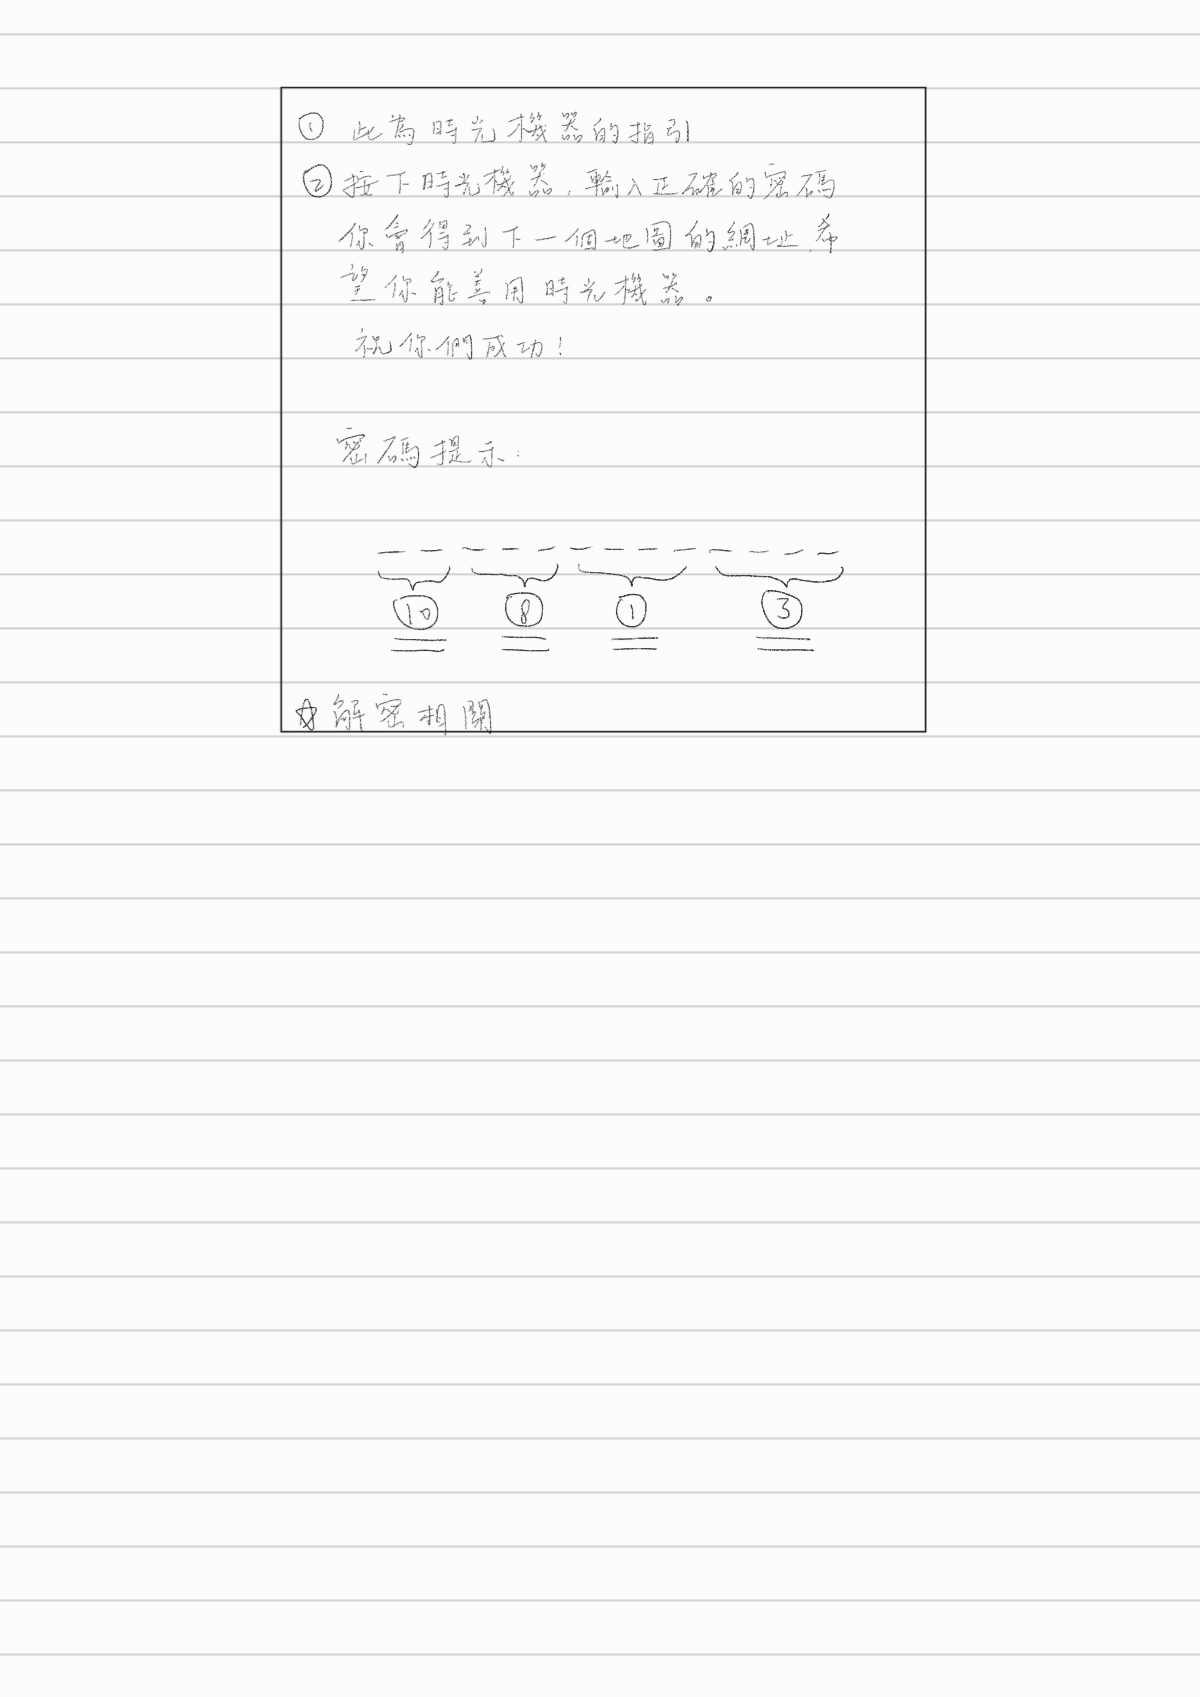 ① 此為時光機器的指引
② 按下時光機器,輸入正確的密碼
你會得到下一個地圖的網址希
望你能善用時光機器。
祝你們成功!
密碼提示:
⑩ ⑧ ① ③
☆解密相關